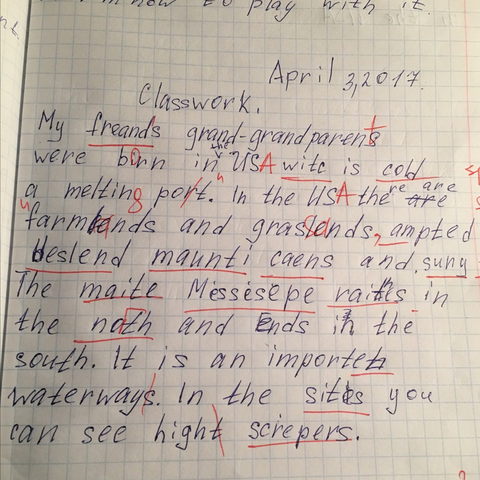 how to play with it.
April 3, 2017.
Classwork.
My freands grand-grandparents
were born in the USA witc is cold
a melting port. In the USA there are
farmlands and graslends, ampted
deslend maunti caens and suny
The maite Messesepe raites in
the noth and Ends in the
south. It is an importeth
waterways. In the sitis you
can see hight screpers.